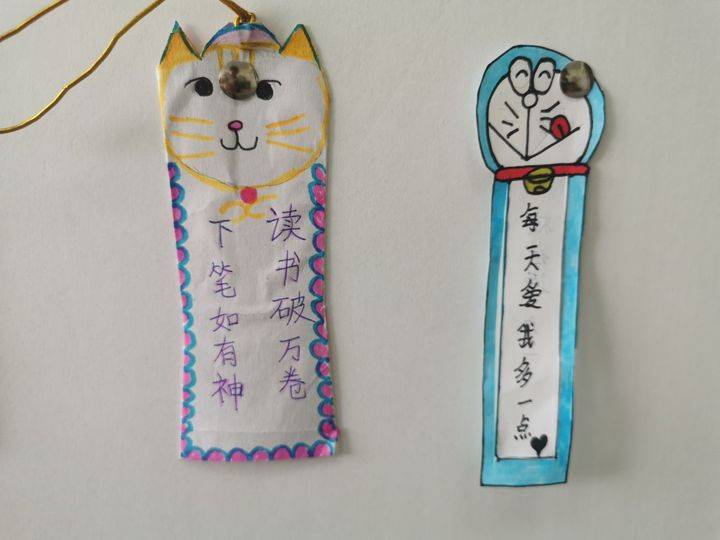 读书破万卷
下笔如有神
每天爱我多一点